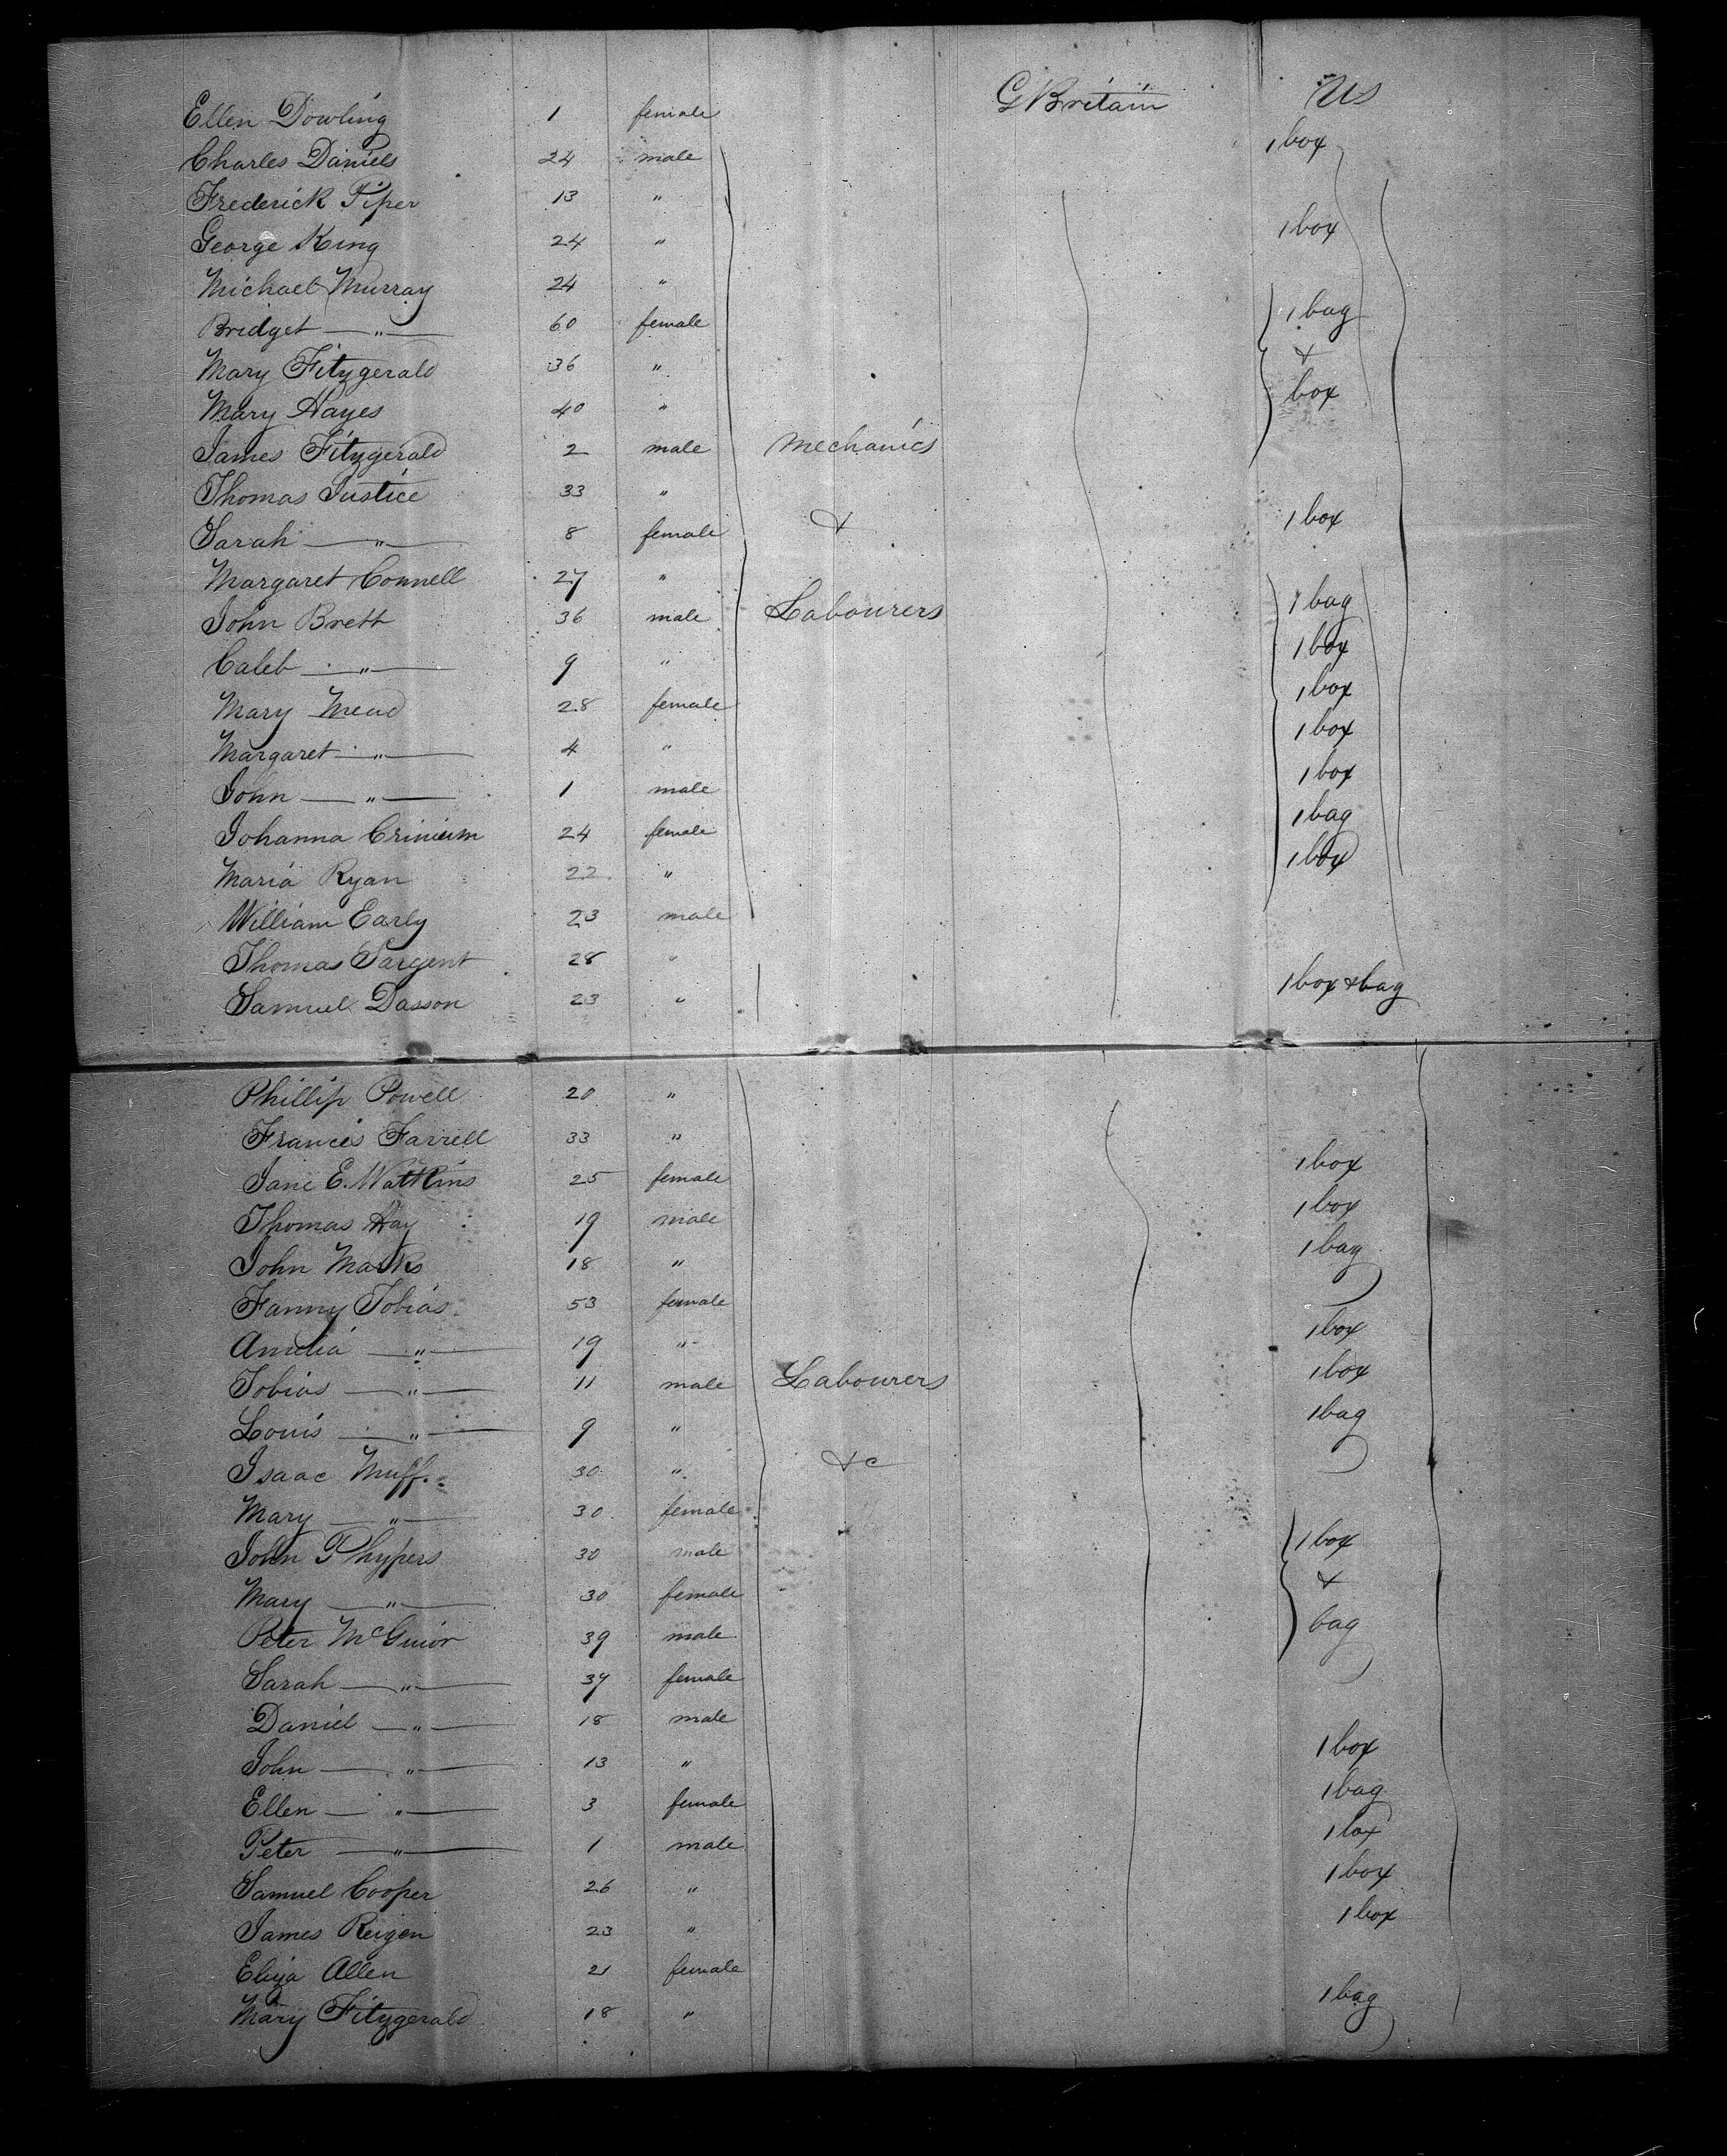 Ellen Dowling 1 female G Britain US
Charles Daniels 24 male 1 box
Frederick Piper 13 "
George King 24 " 1 box
Michael Murray 24 "
Bridget — " — 60 female 1 bag
Mary Fitzgerald 36 " &
Mary Hayes 40 " box
James Fitzgerald 2 male Mechanics
Thomas Justice 33 "
Sarah — " — 8 female & 1 box
Margaret Connell 27 "
John Brett 36 male Labourers 1 bag
Caleb — " — 9 " 1 box
Mary Mead 28 female 1 box
Margaret — " — 4 " 1 box
John — " — 1 male 1 box
Johanna 24 female 1 bag
Maria Ryan 22 " 1 box
William Early 23 male
Thomas Sargent 28 "
Samuel Dasson 23 " 1 box & bag
Phillip Powell 20 "
Francis Farrell 33 "
Jane E. Watkins 25 female 1 box
Thomas Hay 19 male 1 box
John Marks 18 " 1 bag
Fanny Tobias 53 female
Amelia — " — 19 " 1 box
Tobias — " — 11 male Labourers 1 box
Louis — " — 9 " 1 bag
Isaac Muff 30 " &c
Mary — " — 30 female
John Phypers 30 male 1 box
Mary — " — 30 female &
Peter 39 male bag
Sarah — " — 37 female
Daniel — " — 18 male
John — " — 13 " 1 box
Ellen — " — 3 female 1 bag
Peter — " — 1 male 1 box
Samuel Cooper 26 " 1 box
James Reigen 23 " 1 box
Eliza Allen 21 female
Mary Fitzgerald 18 " 1 bag